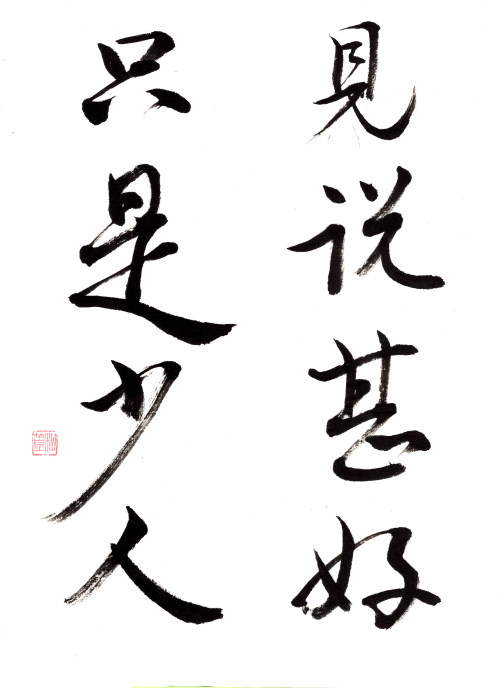 見说甚好
只是少人